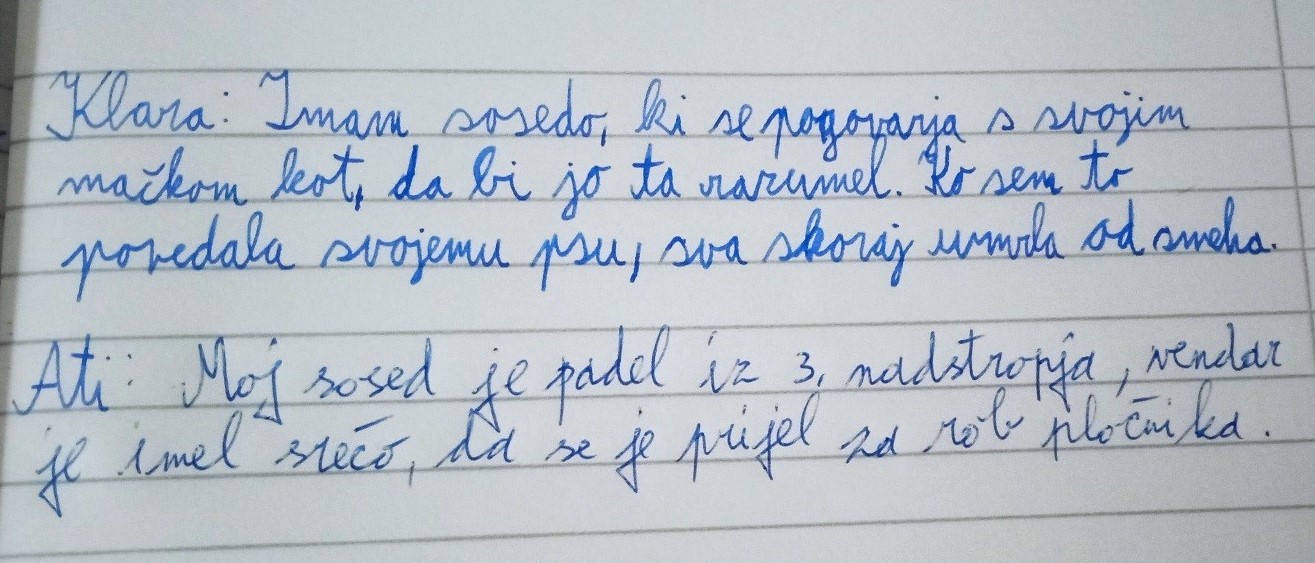 Klara: Imam sosedo, ki se pogovarja s svojim
mačkom kot, da bi jo ta razumel. Ko sem to
povedala svojemu psu, sva skoraj umrla od smeha.
Ati: Moj sosed je padel iz 3. nadstropja, vendar
je imel srečo, da se je prijel za rob pločnika.